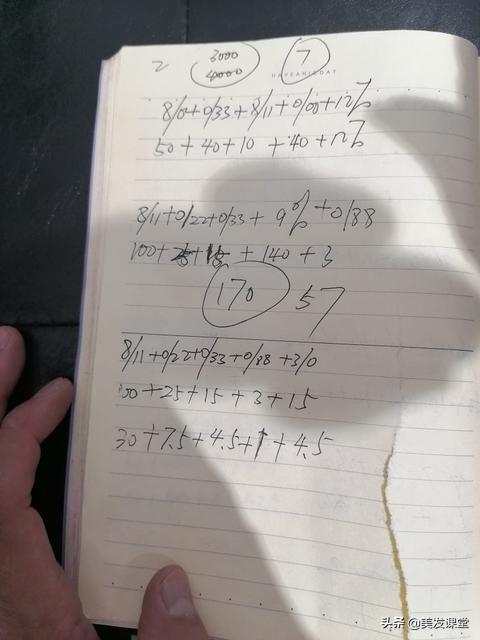 2 3000 7
4000
HAVE A NICE DAY
8/0+0/33+8/11+0/00+12%
50+40+10+40+12%
8/11+0/22+0/33+9%+0/88
100+25+15+140+3
170 57
8/11+0/22+0/33+0/88+3/0
100+25+15+3+15
30+7.5+4.5+1+4.5
头条 @美发课堂